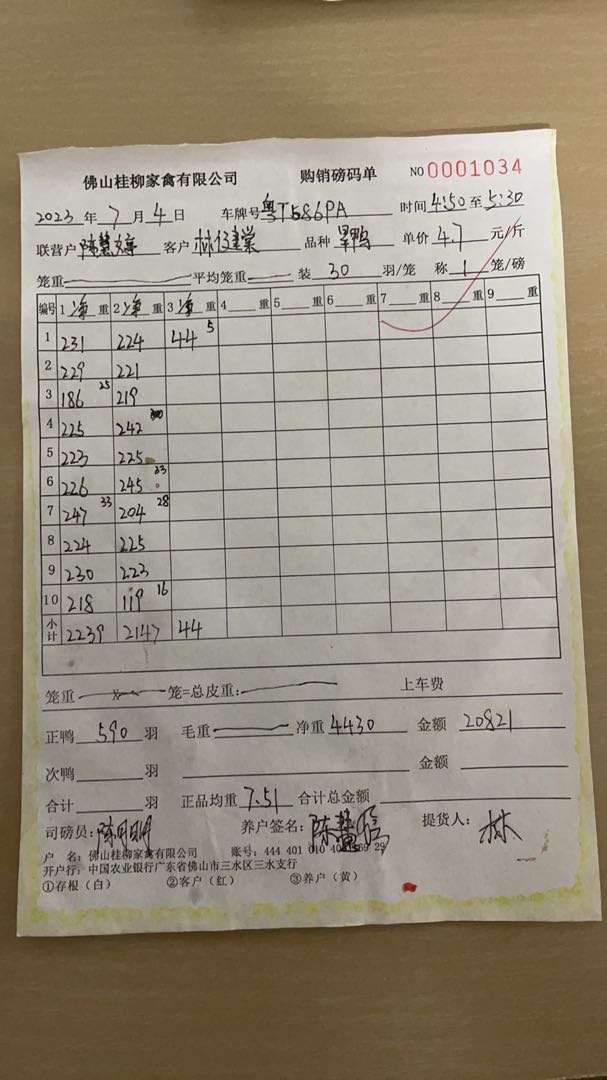 佛山桂柳家禽有限公司 购销磅码单 NO 0001034
2023 年 7 月 4 日 车牌号 粤T586PA 时间 4:50 至 5:30
联营户 陈慧婷 客户 林 棠 品种 旱鸭 单价 4.7 元/斤
笼重 平均笼重 装 30 羽/笼 称 1 笼/磅
编号 1 净 重 2 净 重 3 净 重 4 重 5 重 6 重 7 重 8 重 9 重
1 231 224 44 5
2 229 221
3 186 25 219
4 225 242
5 223 225
6 226 245 33
7 247 33 204 28
8 224 225
9 230 223
10 218 119 16
小计 2239 2147 44
笼重 x 笼=总皮重: 上车费
正鸭 590 羽 毛重 净重 4430 金额 20821
次鸭 羽 金额
合计 羽 正品均重 7.51 合计总金额
司磅员: 陈明明 养户签名: 陈慧 提货人: 林
户 名: 佛山桂柳家禽有限公司 账号: 444 401 010 40 69 29
开户行: 中国农业银行广东省佛山市三水区三水支行
①存根（白） ②客户（红） ③养户（黄）